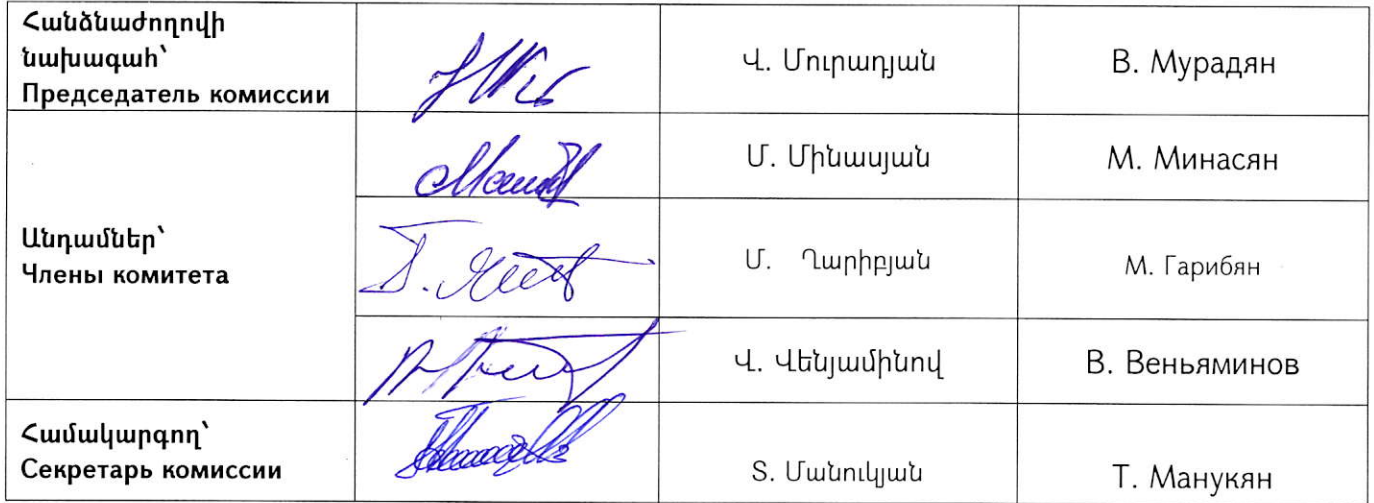 Հանձնաժողովի
նախագահ՝
Председатель комиссии
Վ. Մուրադյան
В. Мурадян
Մ. Մինասյան
М. Минасян
Անդամներ՝
Члены комитета
Մ. Ղարիբյան
М. Гарибян
Վ. Վենյամինով
В. Веньяминов
Համակարգող՝
Секретарь комиссии
Տ. Մանուկյան
Т. Манукян